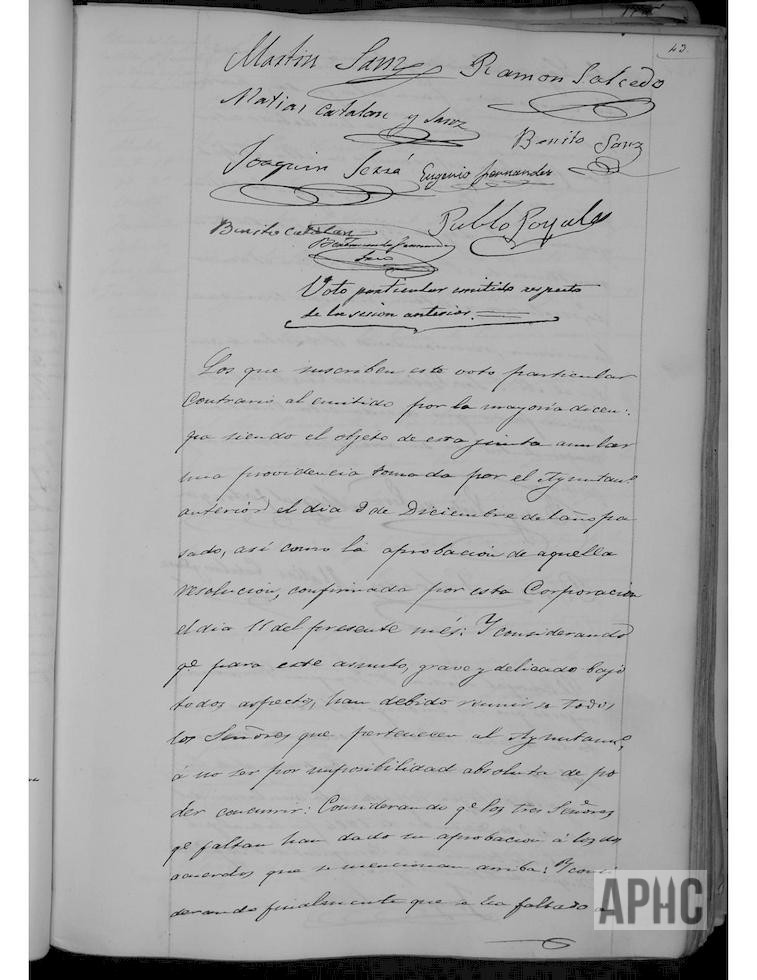 43.
Martin Sanz Ramon Salcedo
Matias Catalan y Sanz
Benito Sanz
Joaquin Sessá Eugenio Fernandez
Benito Catalan Pablo Royuela
Voto particular emitido respecto
de la sesion anterior.
Los que suscriben este voto particular
Contrario al emitido por la mayoría dicen:
que siendo el objeto de esta junta anular
una providencia tomada por el Ayuntamto
anterior el dia 9 de Diciembre del año pa
sado, así como la aprobacion de aquella
resolucion, confirmada por esta Corporacion
el dia 11 del presente més: Y considerando
qe para este asunto, grave y delicado bajo
todos aspectos, han debido reunirse todos
los Señores que pertenecen al Ayuntamto,
á no ser por imposibilidad absoluta de po
der concurrir: Considerando qe los tres Señores
qe faltan han dado su aprobacion á los dos
acuerdos que se mencionan arriba: Y consi
derando finalmente que se ha faltado a
APHC